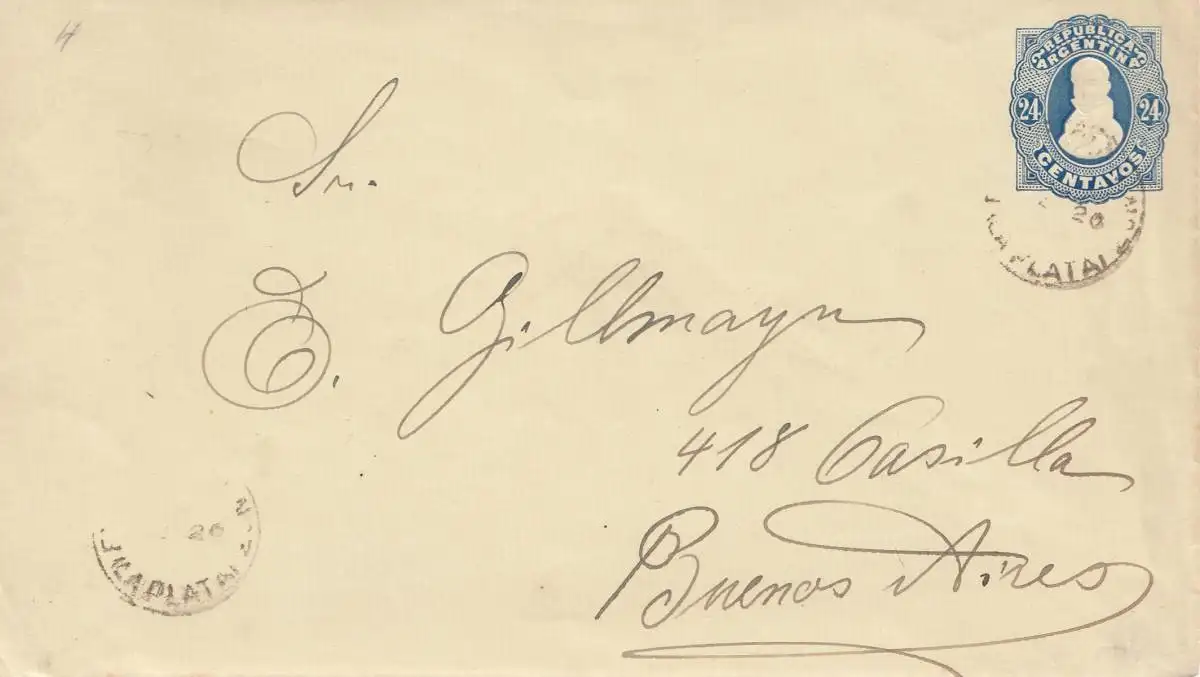 REPUBLICA
ARGENTINA
24 24
CENTAVOS
20
LA PLATA
Sr.
E. Gillmayn
418 Casilla
Buenos Aires
20
LA PLATA